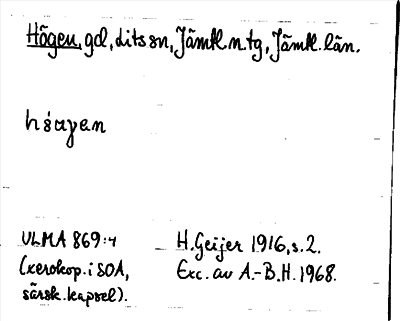 Högen, gd, dits sn, Jämtl. n. tg, Jämtl. län.
ULMA 869:4
(xerokop. i SOA,
särsk. kapsel).
H. Geijer 1916, s. 2.
Exc. av A.-B.H. 1968.